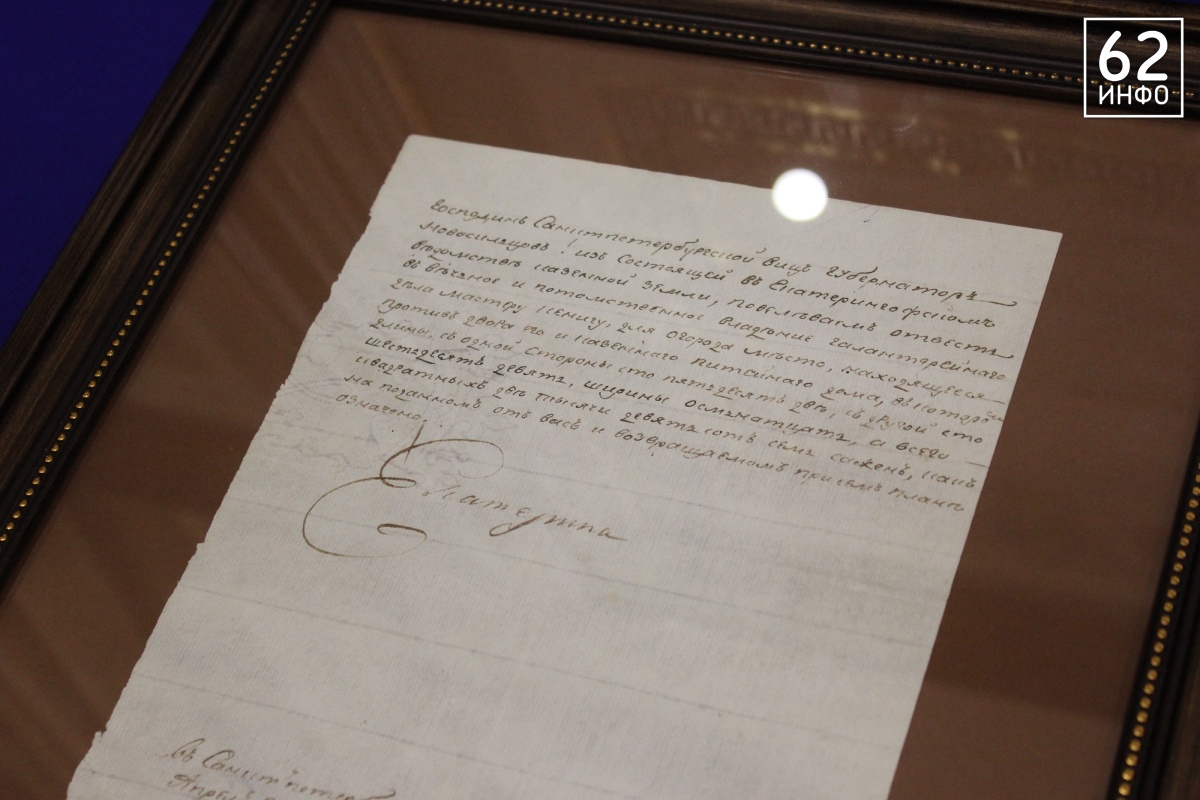 62
ИНФО
Господинъ Санктпетербургской вицъ губернаторъ
Новосилцовъ! изъ состоящей въ Екатерингофскомъ
ведомствѣ казенной земли, повелѣваемъ отвесть
въ вѣчное и потомственное владѣние галантерейнаго
дѣла мастеру для огорода мѣсто, находящееся
противъ двора его и казеннаго питейнаго дома, въ которомъ
длины, съ одной стороны сто пятдесятъ двѣ, съ другой сто
шестдесятъ девять, ширины осмнатцать, а всего
квадратныхъ двѣ тысячи девятьсотъ семь саженъ, какъ
на поданномъ отъ васъ и возвращаемомъ при семъ планѣ
означено.
Екатерина
въ Санктъпетерб